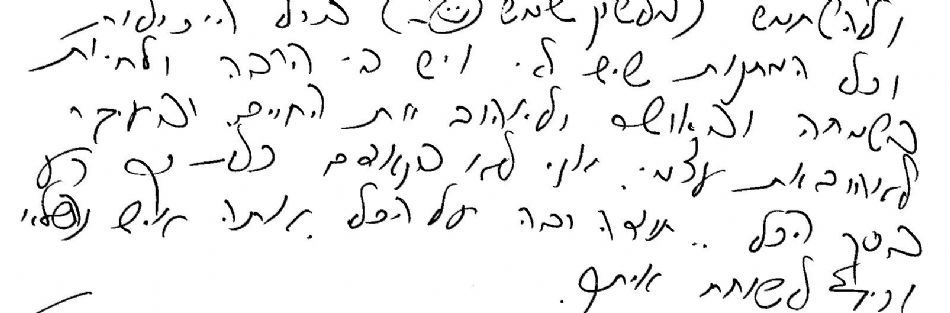 ולהשתמש (במשקפי שמש ☺) בכל היכולות
וכל המתנות שיש לי ויש בי הרבה ולחיות
בשמחה ובאושר ולאהוב את החיים ובעיקר
לאהוב את עצמי. אני לא בנאדם כל-כך רע
בסך הכל .. תודה רבה על הכל אתה איש נפלא
וכיף לשוחח איתך.